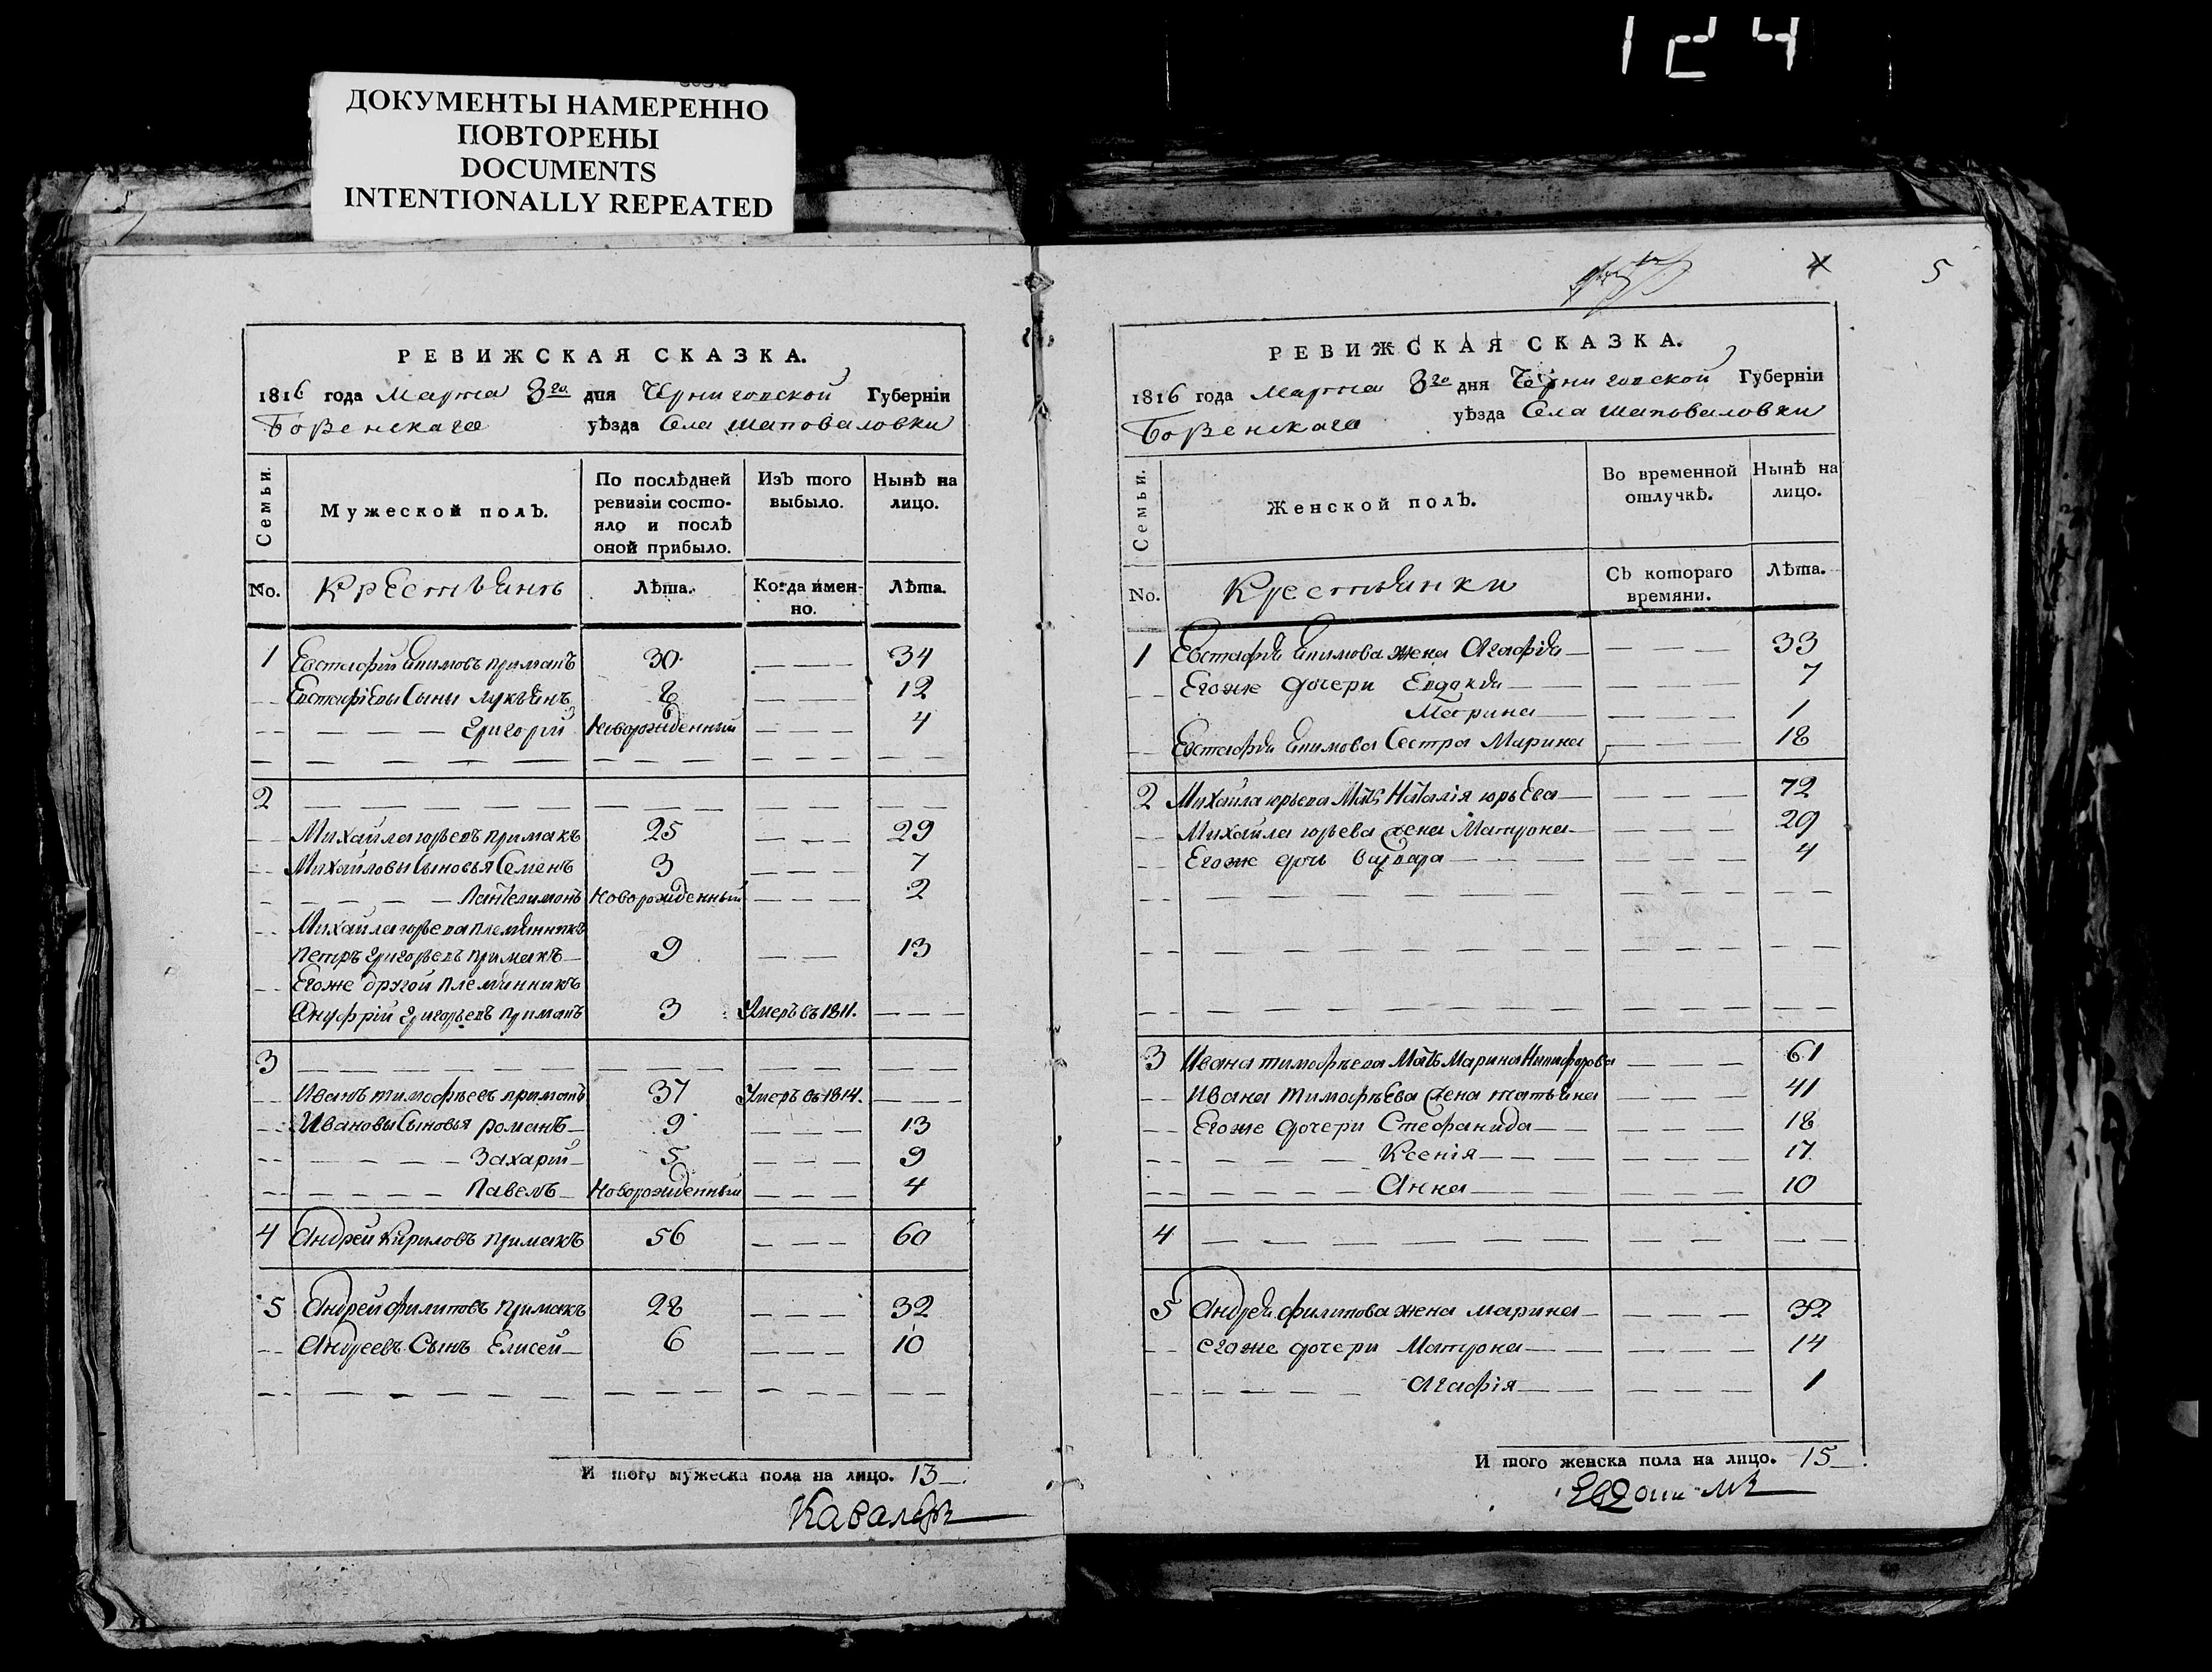 124
ДОКУМЕНТЫ НАМЕРЕННО
ПОВТОРЕНЫ
DOCUMENTS
INTENTIONALLY REPEATED
РЕВИЖСКАЯ СКАЗКА.
1816 года Марта 8го дня Черниговской Губернїи
Борзенскаго уѣзда Села Шаповаловки
Семьи.
Мужеской полъ.
По послѣдней
ревизїи состо-
яло и послѣ
оной прибыло.
Изъ того
выбыло.
Нынѣ на
лицо.
No. Крестьянъ Лѣта. Когда имен-
но. Лѣта.
1 Евстафій Якимовъ примакъ 30 34
Евстафіевы Сыны Лукьянъ 8 12
Григорій Новорожденный 4
2
Михайла юрьевъ примакъ 25 29
Михайловы Сыновья Семенъ 3 7
Пантелимонъ Новорожденный 2
Михайла юрьева племянникъ
петръ Григорьевъ примакъ 9 13
Егоже другой племянникъ
Онуфрій Григорьевъ примакъ 3 Умеръ въ 1811.
3
Иванъ тимофѣевъ примакъ 37 Умеръ въ 1814.
Ивановы Сыновья романъ 9 13
Захарій 5 9
Павелъ Новорожденный 4
4 Андрей Кириловъ примакъ 56 60
5 Андрей филиповъ примакъ 28 32
Андреевъ Сынъ Елисей 6 10
И того мужеска пола на лицо. 13
Кавалеръ
4 5
РЕВИЖСКАЯ СКАЗКА.
1816 года Марта 8го дня Черниговской Губернїи
Борзенскаго уѣзда Села Шаповаловки
Семьи.
Женской полъ.
Во временной
отлучкѣ.
Нынѣ на
лицо.
No. Крестьянки Съ котораго
времяни. Лѣта.
1 Евстафія Якимова жена Агафія 33
Егоже дочери Евдокія 7
Марина 1
Евстафія Якимова Сестра Марина 18
2 Михайла юрьева Мать Наталія юрьева 72
Михайла юрьева жена Матрона 29
Егож дочь Варвара 4
3 Ивана тимофѣева Мать Марина Никифорова 61
Ивана Тимофѣева жена татьяна 41
Егоже дочери Стефанида 18
Ксенія 17
Анна 10
4
5 Андрея филипова жена марина 32
егоже дочери Матрона 14
Агафія 1
И того женска пола на лицо. 15